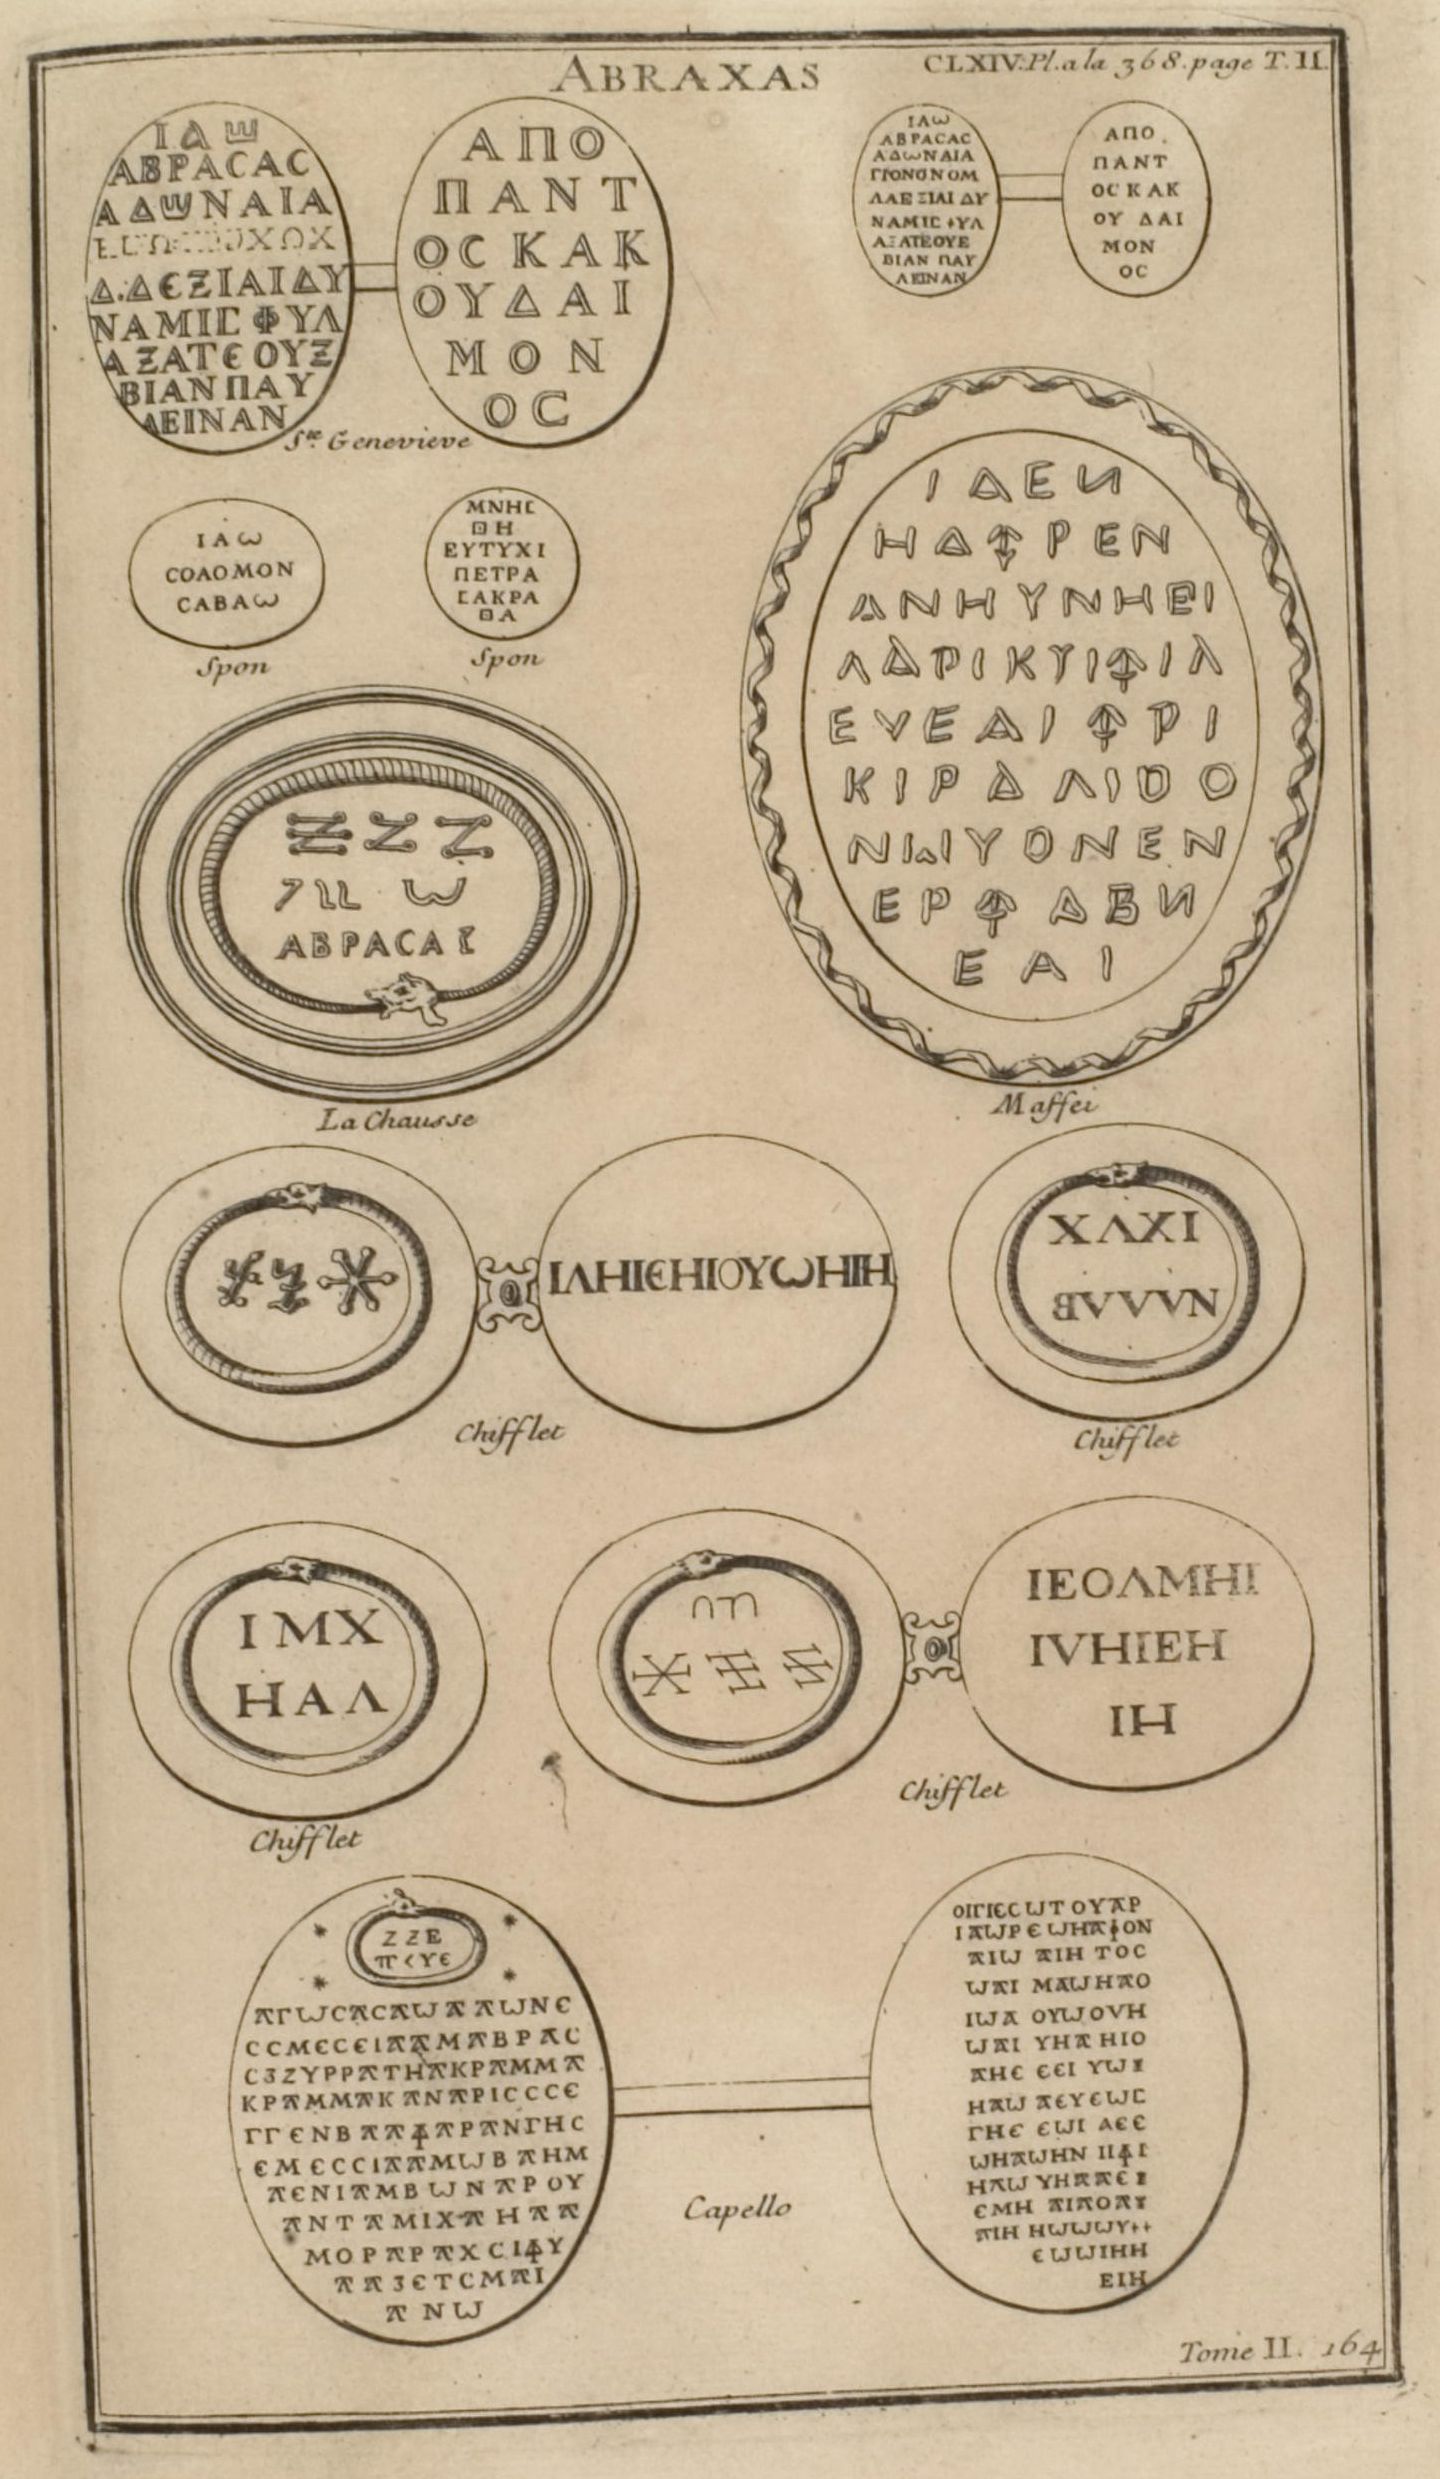 ABRAXAS
CLXIV. Pl. a la 368. page T. II.
ΙΔω
ΑΒΡΑCΑC
ΑΔωΝΑΙΑ
Δ.ΔЄΞΙΑΙΔΥ
ΝΑΜΙΙC ΦΥΛ
ΑΞΑΤЄΟΥΞ
ΒΙΑΝΠΑΥ
ΛΕΙΝΑΝ
ΑΠΟ
ΠΑΝΤ
ΟC ΚΑΚ
ΟΥΔΑΙ
ΜΟΝ
ΟC
Ste. Genevieve
ΙΛω
ΑΒΡΑCΑC
ΑΔωΝΑΙΑ
ΓΓΟΝΟΝΟΜ
ΛΑΕΞΙΑΙ ΔΥ
ΝΑΜΙC ΦΥΛ
ΑΞΑΤΕΟΥΕ
ΒΙΑΝ ΠΑΥ
ΛΕΙΝΑΝ
ΑΠΟ
ΠΑΝΤ
ΟC ΚΑΚ
ΟΥ ΔΑΙ
ΜΟΝ
ΟC
ΙΑω
CΟΛΟΜΟΝ
CΑΒΑω
Spon
ΜΝΗC
ΘΗ
ΕΥΤΥΧΙ
ΠΕΤΡΑ
CΑΚΡΑ
ΘΑ
Spon
ΑΒΡΑCΑΣ
La Chausse
ΙΔΕΝ
ΗΔΦΡΕΝ
ΑΝΗΥΝΗΕΙ
ΛΔΡΙΚΥΙΦΙΛ
ΕVΕΔΙΦΡΙ
ΚΙΡΔΛΙΘΟ
ΝωΙΥΟΝΕΝ
ΕΡΦΔΒΝ
ΕΑΙ
Maffei
ΙΛΗΙЄΗΙΟΥωΗΙΗ
Chifflet
ΧΛΧΙ
Chifflet
ΙΜΧ
ΗΑΛ
Chifflet
ΙΕΟΛΜΗΙ
ΙVΗΙΕΗ
ΙΗ
Chifflet
ΖΖΕ
Π<ΥЄ
ΑΓωCΑCΑωΑΑωΝЄ
CCΜЄCЄΙΑΑΜΑΒΡΑC
C3ΖΥΡΡΑΤΗΑΚΡΑΜΜΑ
ΚΡΑΜΜΑΚΑΝΑΡΙCCCЄ
ΓΓЄΝΒΑΑΦΑΡΑΝΓΗC
ЄΜЄCCΙΑΑΜωΒΑΗΜ
ΑЄΝΙΑΜΒωΝΑΡΟΥ
ΑΝΤΑΜΙΧΑΗΑΑ
ΜΟΡΑΡΑΧCΙΦΥ
ΑΑ3ЄΤCΜΑΙ
ΑΝω
ΟΙΓΙЄCωΤΟΥΑΡ
ΙΑωΡЄωΗΑΦΟΝ
ΑΙω ΑΙΗ ΤΟC
ωΑΙ ΜΑωΗΑΟ
ΙωΑ ΟΥωΟVΗ
ωΑΙ ΥΗΑ ΗΙΟ
ΑΗЄ ЄЄΙ ΥωΙ
ΗΑω ΑЄΥЄωC
ΓΗЄ ЄωΙ ΑЄЄ
ωΗΑωΗΝ ΙΙΦΙ
ΗΑω ΥΗΑΑЄΙ
ЄΜΗ ΑΙΑΟΑΥ
ΑΙΗ ΗωωωΥ++
ЄωωΙΗΗ
ΕΙΗ
Capello
Tome II. 164